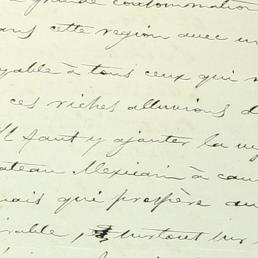 grande consommation
dans cette région avec un
à tous ceux qui
ces riches alluvions d
Il faut y ajouter la
Mexicain à cau
mais qui prospère au
surtout sur